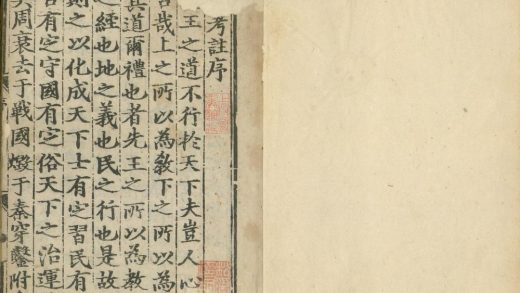 考註序
王之道不行於天下夫豈人心
哉上之所以為教下之所以為
道爾禮也者先王之所以為教
之經也地之義也民之行也是故
則之以化成天下士有定習民有
有定守國有定俗天下之治運
周衰去于戰國燬于秦穿鑿附